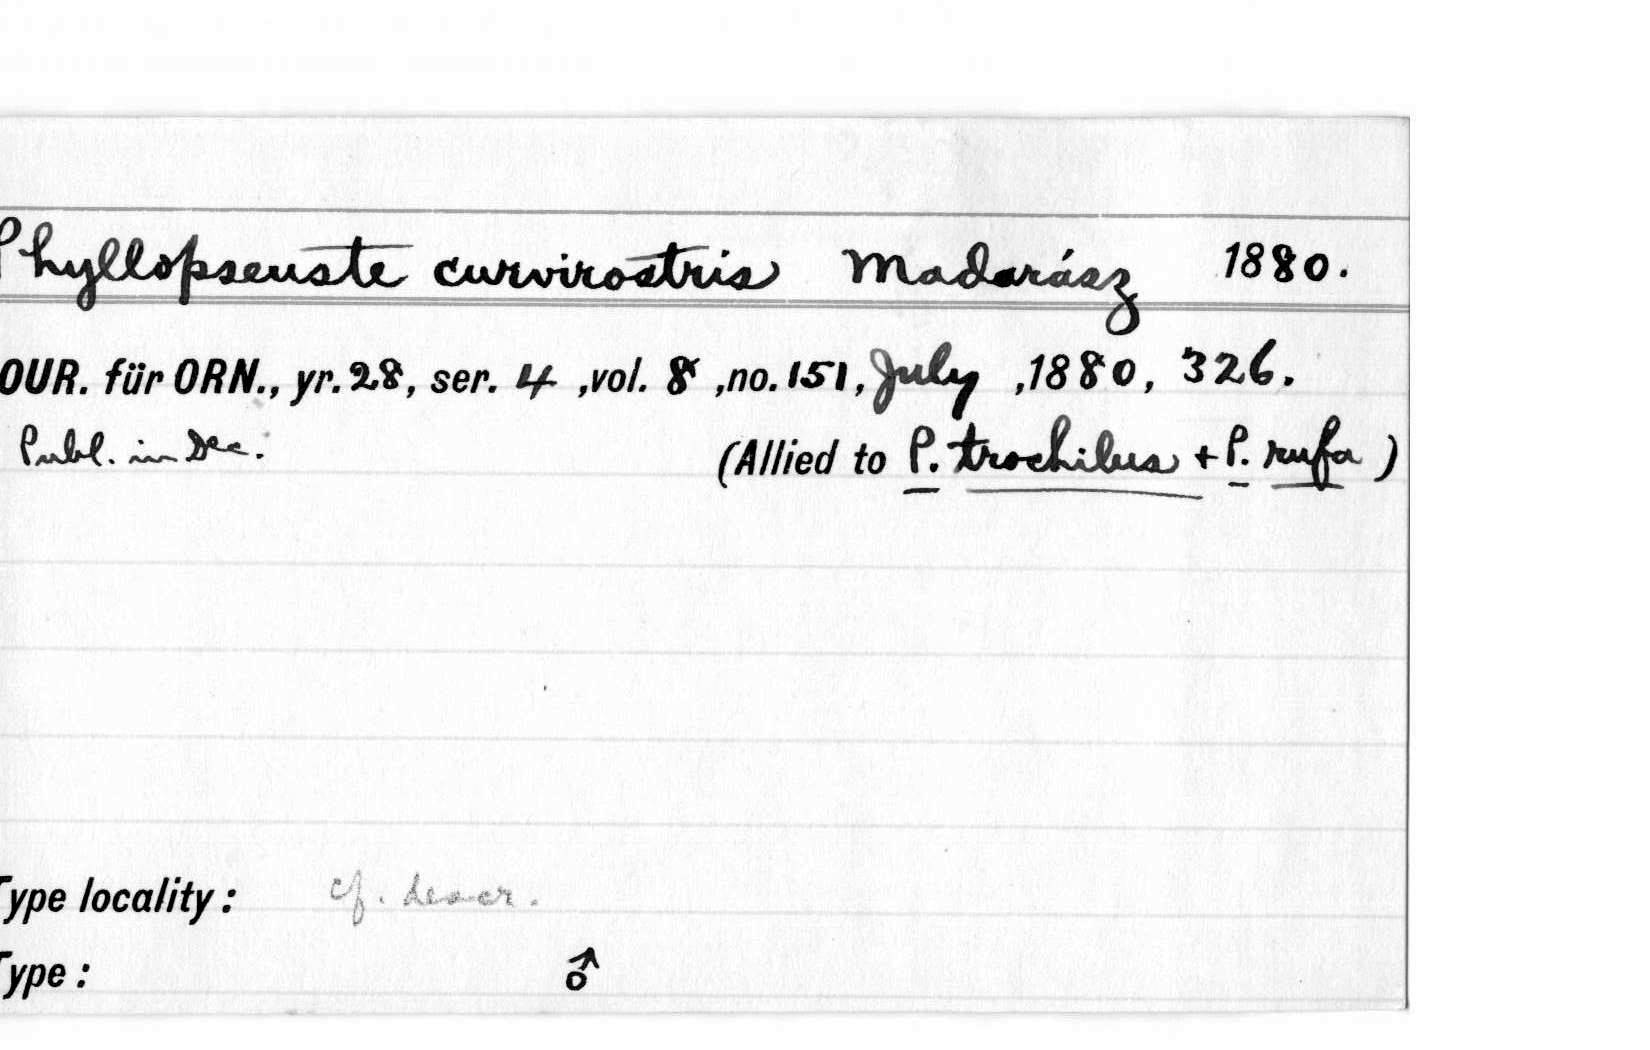 Phyllopseuste curvirostris Madarász 1880.
OUR. für ORN., yr. 28, ser. 4 ,vol. 8 ,no. 151, July ,1880, 326.
Publ. in Dec.
(Allied to P. trochilus + P. rufa )
Type locality : cf. descr.
Type : ♂